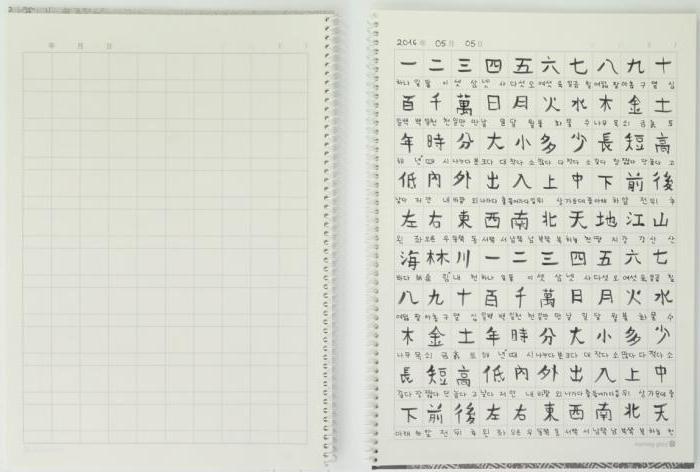 年 月 日
2016年 05月 05日
一 二 三 四 五 六 七 八 九 十
하나 일 둘 이 셋 삼 넷 사 다섯 오 여섯 육 일곱 칠 여덟 팔 아홉 구 열 십
百 千 萬 日 月 火 水 木 金 土
일백 백 일천 천 일만 만 날 일 달 월 불 화 물 수 나무 목 쇠 금 흙 토
年 時 分 大 小 多 少 長 短 高
해 년 때 시 나누다 분 크다 대 작다 소 많다 다 적다 소 길다 장 짧다 단 높다 고
低 內 外 出 入 上 中 下 前 後
낮다 저 안 내 바깥 외 나가다 출 들어가다 입 위 상 가운데 중 아래 하 앞 전 뒤 후
左 右 東 西 南 北 天 地 江 山
왼 좌 오른 우 동녘 동 서녘 서 남녘 남 북녘 북 하늘 천 땅 지 강 강 산 산
海 林 川 一 二 三 四 五 六 七
바다 해 수풀 림 내 천 하나 일 둘 이 셋 삼 넷 사 다섯 오 여섯 육 일곱 칠
八 九 十 百 千 萬 日 月 火 水
여덟 팔 아홉 구 열 십 일백 백 일천 천 일만 만 날 일 달 월 불 화 물 수
木 金 土 年 時 分 大 小 多 少
나무 목 쇠 금 흙 토 해 년 때 시 나누다 분 크다 대 작다 소 많다 다 적다 소
長 短 高 低 內 外 出 入 上 中
길다 장 짧다 단 높다 고 낮다 저 안 내 바깥 외 나가다 출 들어가다 입 위 상 가운데 중
下 前 後 左 右 東 西 南 北 天
아래 하 앞 전 뒤 후 왼 좌 오른 우 동녘 동 서녘 서 남녘 남 북녘 북 하늘 천
morning glory